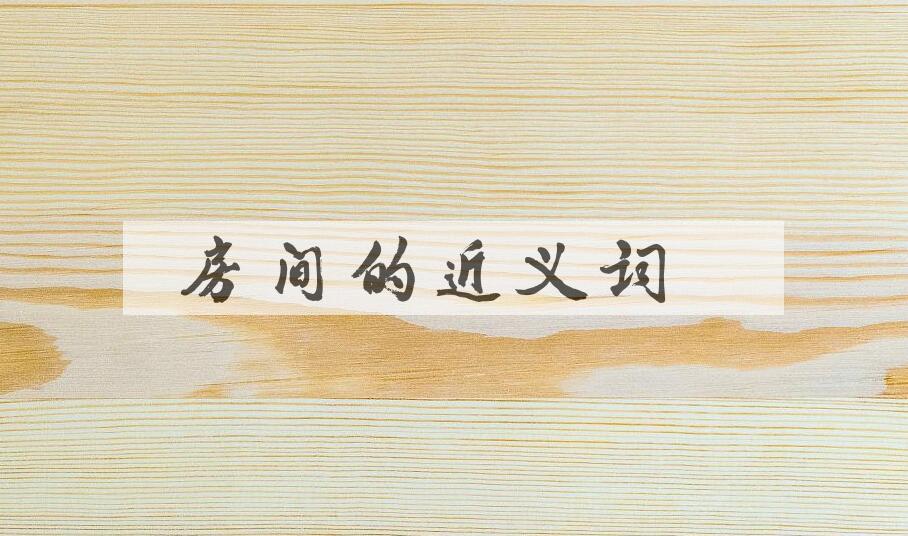 房间的近义词